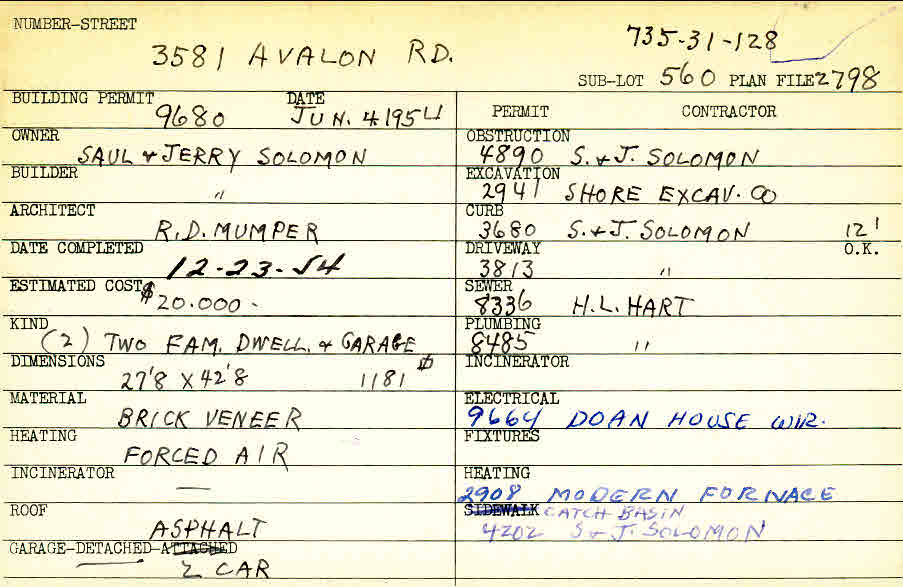 NUMBER-STREET
3581 AVALON RD.
735-31-128
SUB-LOT 560 PLAN FILE 2798
BUILDING PERMIT 9680 DATE JUN. 4 1954
OWNER
SAUL + JERRY SOLOMON
BUILDER
"
ARCHITECT
R.D. MUMPER
DATE COMPLETED
12-23-54
ESTIMATED COST $20.000-
KIND
(2) TWO FAM. DWELL. + GARAGE
DIMENSIONS
27'8 X 42'8 1181 ⌀
MATERIAL
BRICK VENEER
HEATING
FORCED AIR
INCINERATOR
—
ROOF
ASPHALT
GARAGE-DETACHED-ATTACHED
2 CAR
PERMIT CONTRACTOR
OBSTRUCTION
4890 S. + J. SOLOMON
EXCAVATION
2941 SHORE EXCAV. CO
CURB
3680 S. + J. SOLOMON 12'
DRIVEWAY O.K.
3813 "
SEWER
8336 H.L. HART
PLUMBING
8485 "
INCINERATOR
ELECTRICAL
9664 DOAN HOUSE WIR.
FIXTURES
HEATING
2908 MODERN FORNACE
SIDEWALK CATCH BASIN
4202 S + J. SOLOMON